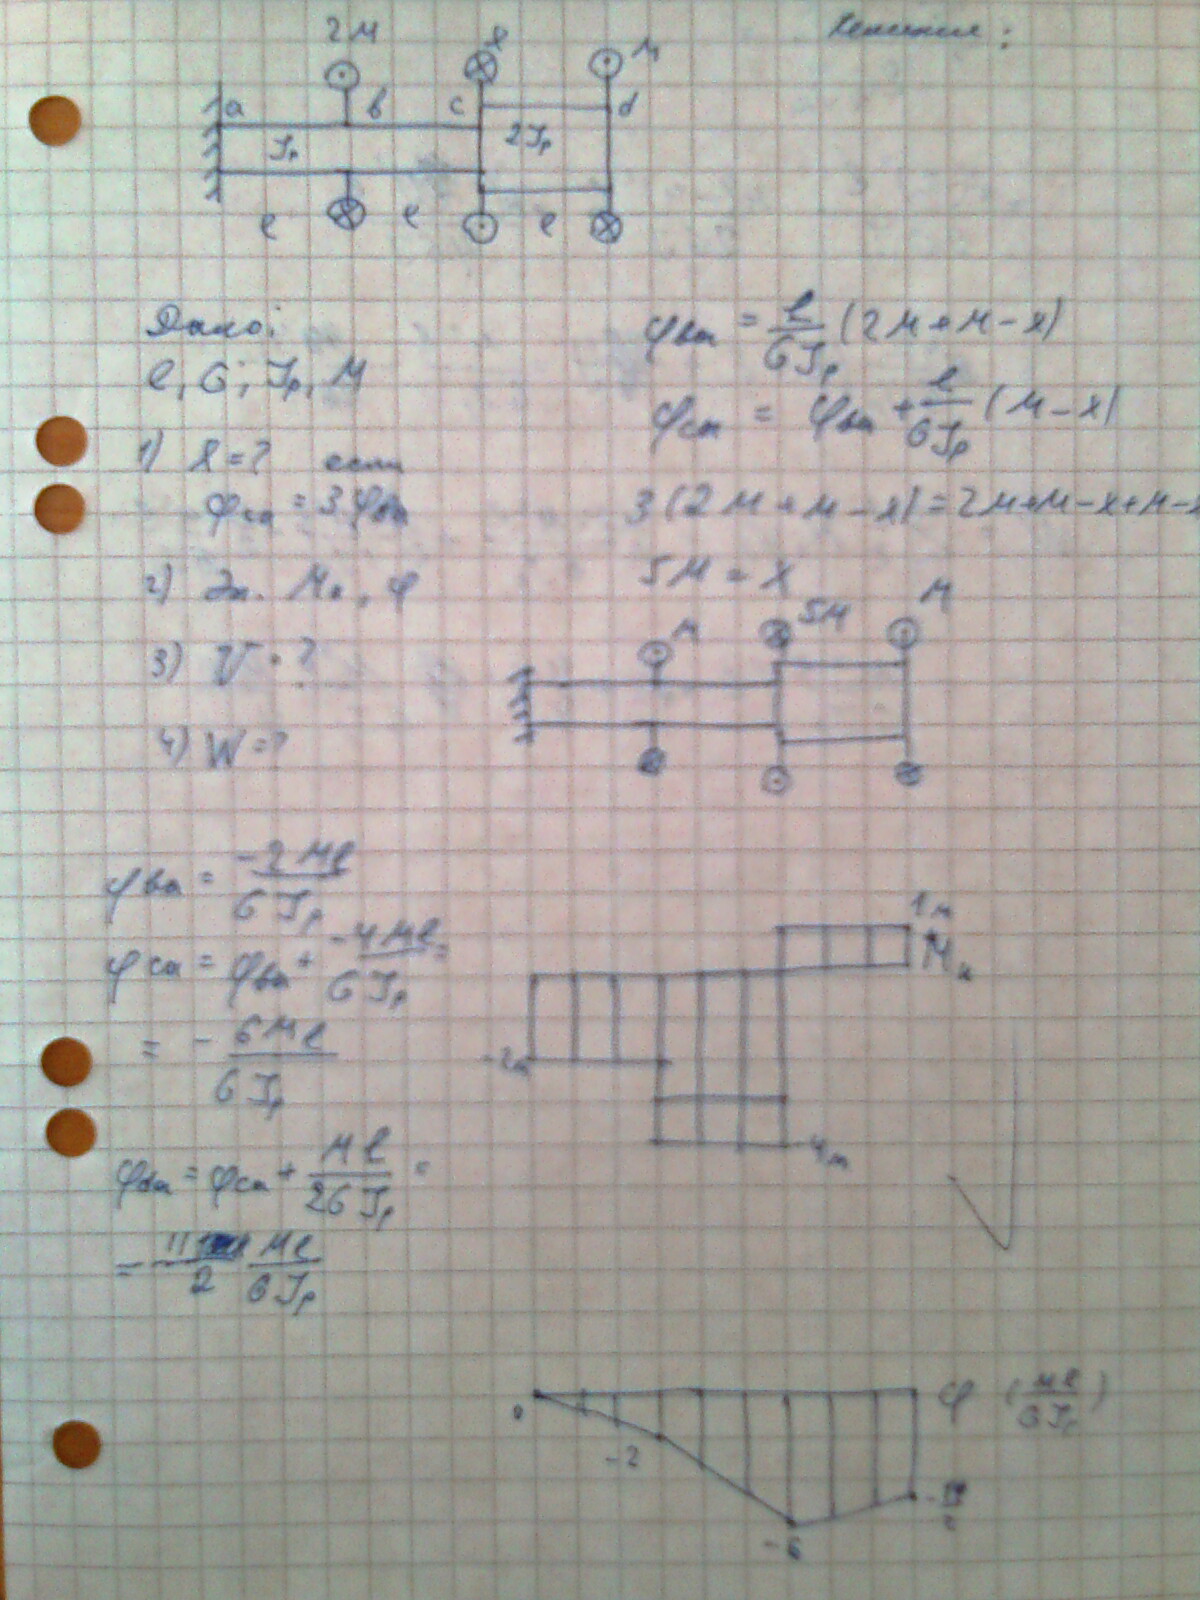 Решение:
2M X M
a b c d
Jp 2Jp
l l l
Дано:
l, G, Jp, M
1) X = ? если
φca = 3φba
2) Эп. Mк, φ
3) V = ?
4) W = ?
φba = l/GJp (2M + M - X)
φca = φba + l/GJp (M - X)
3(2M + M - X) = 2M + M - X + M - X
5M = X
M 5M M
φba = -2Ml/GJp
φca = φba + -4Ml/GJp =
= - 6Ml/GJp
φda = φca + Ml/2GJp =
= - 11/2 Ml/GJp
1M
Mк
-2M
-4M
φ (Ml/GJp)
0
-2
-6